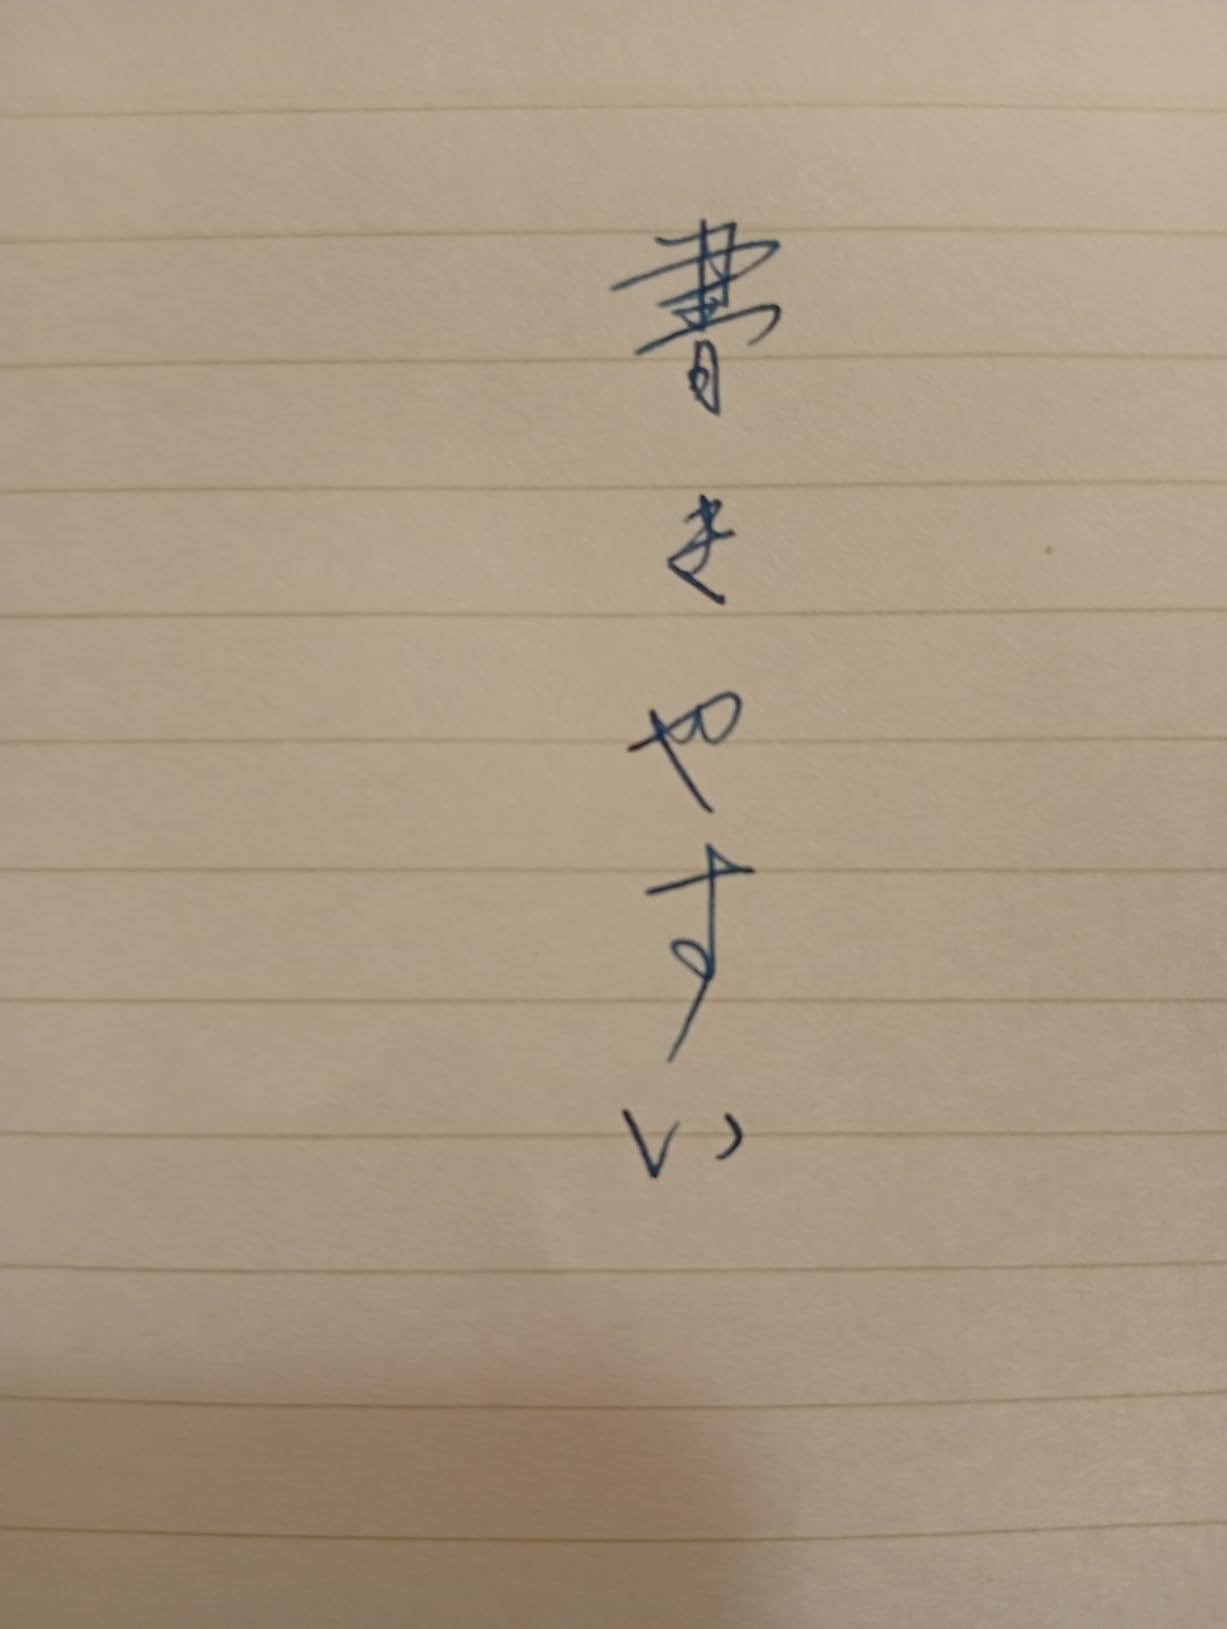 書きやすい